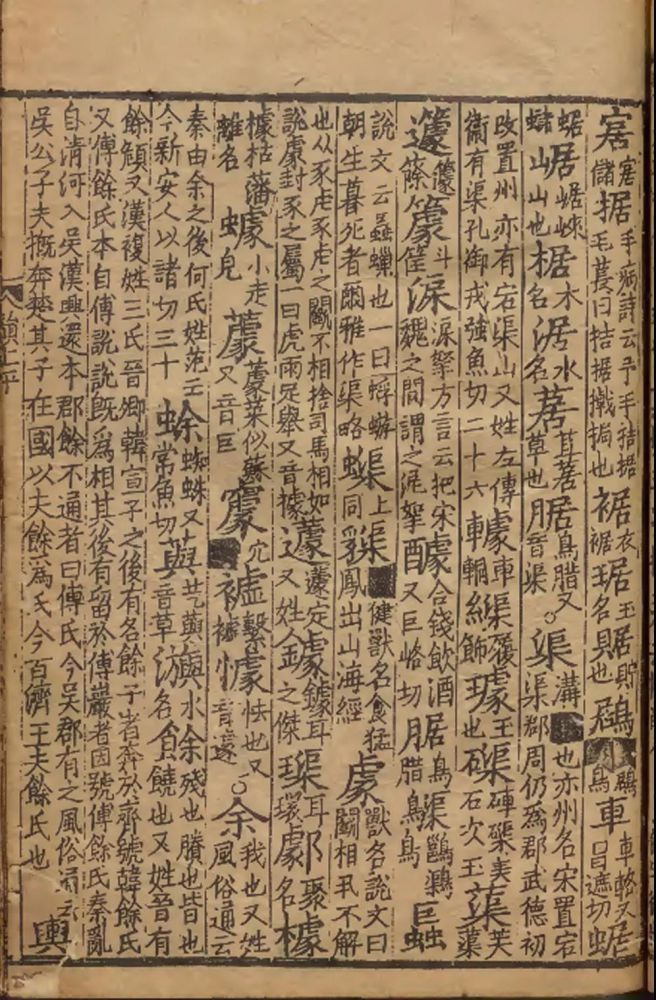 㝒儲据手病詩云予手拮据毛萇曰拮据撠挶也裾衣裾琚玉名䝻貯也鶋鳥車車輅又昌遮切蜛
蜛蝫崌崌崍山也椐木名涺水名腒鳥腊又音渠○渠溝也亦州名宋置宕渠郡周仍爲郡武德初
改置州亦有宕渠山又姓左傳衞有渠孔御戎強魚切二十六車輞履飾璩玉也磲硨磲美石次玉蕖芙蕖
籧籧篨筐淭淭挐方言云杷宋魏之間謂之淭挐醵合錢飲酒又巨略切腒鳥腊
說文云也一曰蜉蝣朝生暮死者爾雅作渠略蟝上同健獸名食猛鳳出山海經豦獸名說文曰鬭相丮不解
也从豕虍豕虍之鬭不相捨司馬相如說豦封豕之屬一曰虎兩足舉又音據蘧又姓鐻耳之傑璖耳環名
據枯藩籬名小走皃蕖菜似蘇又音巨穴怯也又音遽○余我也又姓風俗通云
秦由余之後何氏姓苑云今新安人以諸切三十蜍蜘蛛又常魚切音草水名餘殘也賸也皆也饒也又姓晉有
餘頠又漢複姓三氏晉卿韓宣子之後有名餘子者奔於齊號韓餘氏又傅餘氏本自傅說說旣爲相其後有留於傅巖者因號傅餘氏秦亂
自清河入吳漢興還本郡餘不還者曰傅氏今吳郡有之風俗通云吳公子夫摡奔楚其子在國以夫餘爲氏今百濟王夫餘氏也輿